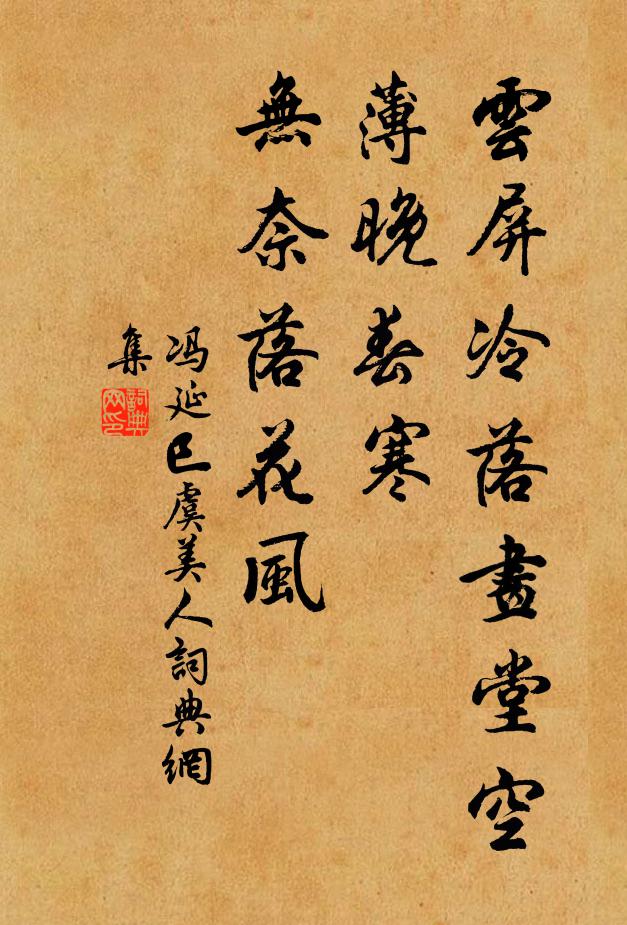 雲屏冷落畫堂空
薄晚春寒
無奈落花風
冯延巳虞美人詞典網
集
詞典
网印